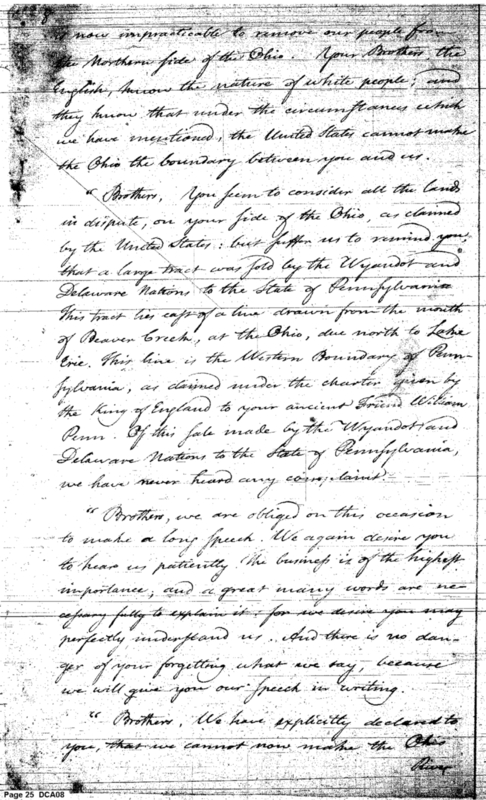 is now impracticable to remove our people from
the Northern side of the Ohio. Your Brothers the
English, know the nature of white people; and
they know that under the circumstances which
we have mentioned, the United States cannot make
the Ohio the boundary between you and us.
"Brothers, You seem to consider all the lands
in dispute, on your side of the Ohio, as claimed
by the United States: but suffer us to remind you,
that a large tract was sold by the Wyandot and
Delaware Nations to the State of Pennsylvania
This tract lies east of a line drawn from the mouth
of Beaver Creek, at the Ohio, due north to Lake
Erie. This line is the Western Boundary of Penn-
sylvania, as claimed under the charter given by
the King of England to your ancient Friend William
Penn. Of this sale made by the Wyandot and
Delaware Nations to the State of Pennsylvania,
we have never heard any complaint.
"Brothers, we are obliged on this occasion
to make a long speech. We again desire you
to hear us patiently The business is of the highest
importance, and a great many words are ne-
cessary fully to explain it: for we desire you may
perfectly understand us. And there is no dan-
ger of your forgetting what we say, because
we will give you our speech in writing.
"Brothers, We have explicitly declared to
you, that we cannot now make the Ohio
River
Page 25 DCA08